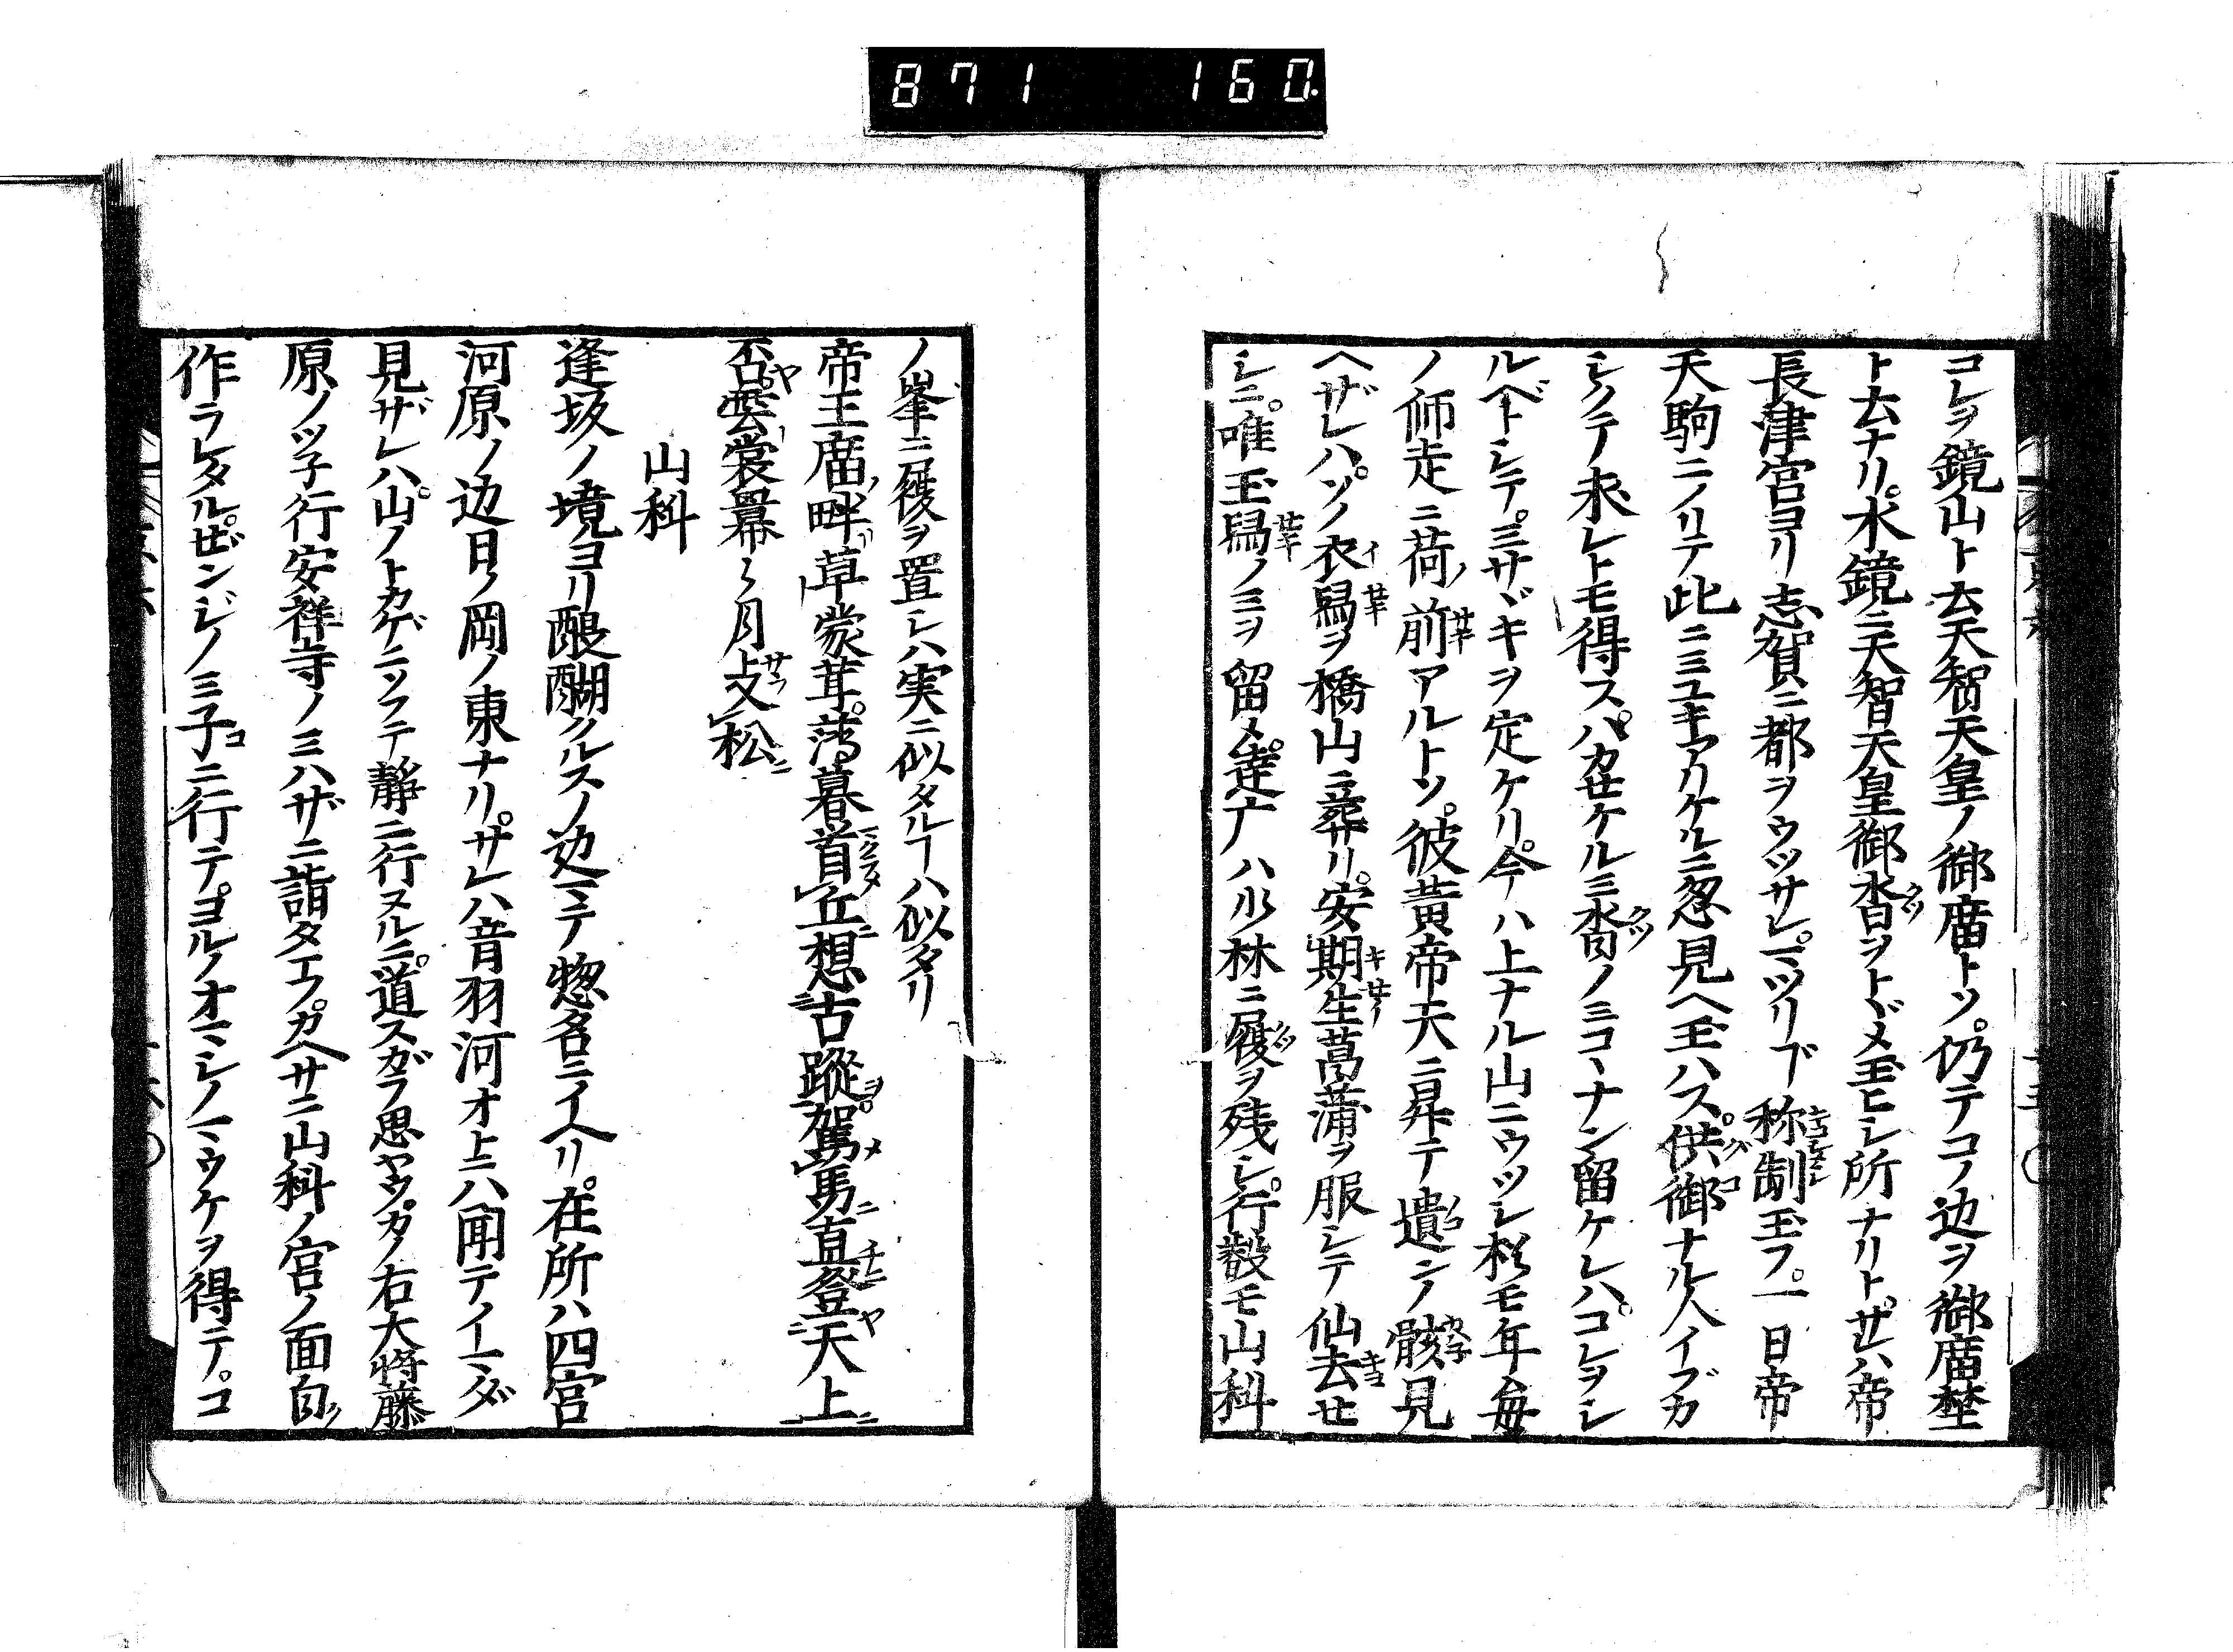 871 160.
コレヲ鏡山ト云天智天皇ノ御廟トソ。仍テコノ辺ヲ御廟埜
ト云ナリ。水鏡ニ天智天皇御沓ヲトヾメ玉ヒシ所ナリト。サレハ帝
長津宮ヨリ志賀ニ都ヲウツサレ。マツリヿ称制玉フ。一日帝
天駒ニノリテ此ニミユキアリケルニ忽見ヘ玉ハス。供御ナル人イブカ
シクテ求レトモ得ス。ハカセケルミ沓ノミコヽナン留ケレハ。コレヲシ
ルベトシテ。ミサヾキヲ定ケリ。今ハ上ナル山ニウツシ松モ年毎
ノ師走ニ荷前アルトソ。彼黄帝天ニ昇テ遺シノ骸見
ヘザレハ。ソノ衣舄ヲ橋山ニ葬リ。安期生菖蒲ヲ服シテ仙去セ
シニ。唯玉舄ノミヲ留メ。達ナハ少林ニ履ヲ残シ。行叡モ山科
ノ峯ニ履ヲ置シハ実ニ似タルヿハ似タリ
帝王廟畔草蒙茸。薄暮首丘想古蹤。駕馬直登天上
否。雲裳羃々月上松
山科
逢坂ノ境ヨリ醍醐クルスノ辺マテ惣名ニイヘリ。在所ハ四宮
河原ノ辺日ノ岡ノ東ナリ。サレハ音羽河オ上ニハ聞テイマダ
見ザレハ。山ノトカゲニソフテ静ニ行ヌルニ。道スガラ思ヤツ。カノ右大将藤
原ノツ子行安祥寺ノミハザニ詣タエフ。カヘサニ山科ノ宮ノ面白ク
作ラレタル。ゼンジノミ子ニ行テ。ヨルノオマシノマウケヲ得テ。コ